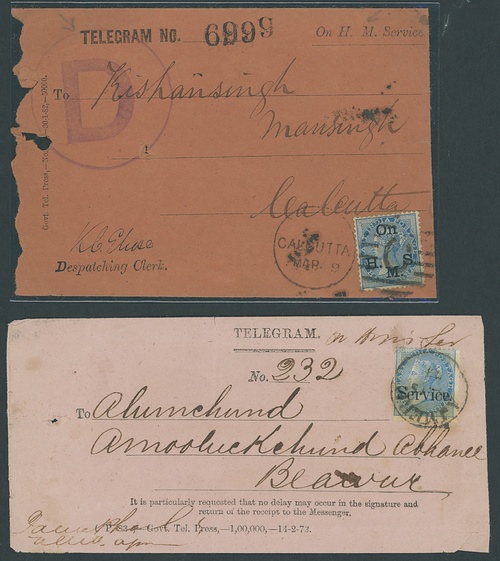 TELEGRAM NO. 6999
On H. M. Service.
D
To Kishansingh
Mansingh
Calcutta
Govt. Tel. Press,
Despatching Clerk.
CALCUTTA
MAR. 9
On
H. S.
M.
TELEGRAM.
No. 232
Service.
To Alumchund
Amooluckchund
Beawur
It is particularly requested that no delay may occur in the signature and
return of the receipt to the Messenger.
Govt. Tel. Press,—1,00,000,—14-2-73.